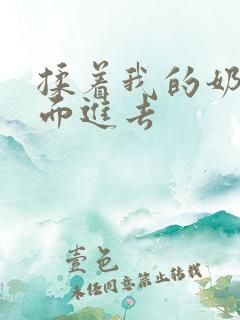 揉着我的奶
而进去
壹色
未经同意禁止转载